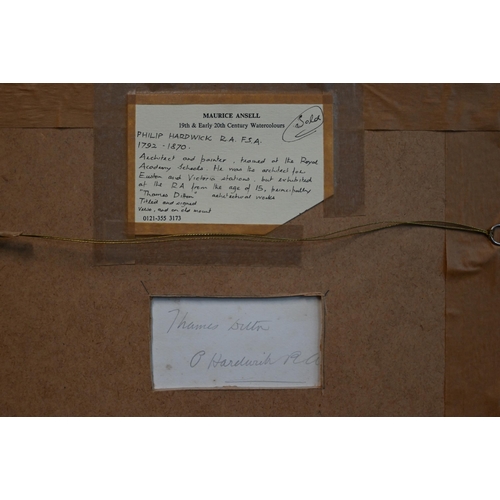 MAURICE ANSELL
19th & Early 20th Century Watercolours
PHILIP HARDWICK R.A. F.S.A.
1792 - 1870.
Architect and painter, trained at the Royal
Academy Schools. He was the architect for
Euston and Victoria stations, but exhibited
at the R.A from the age of 15, principally
"Thames Ditton" architectural works
Titled and signed
verso, and on old mount
0121-355 3173
Thames "Ditton"
P Hardwick RA